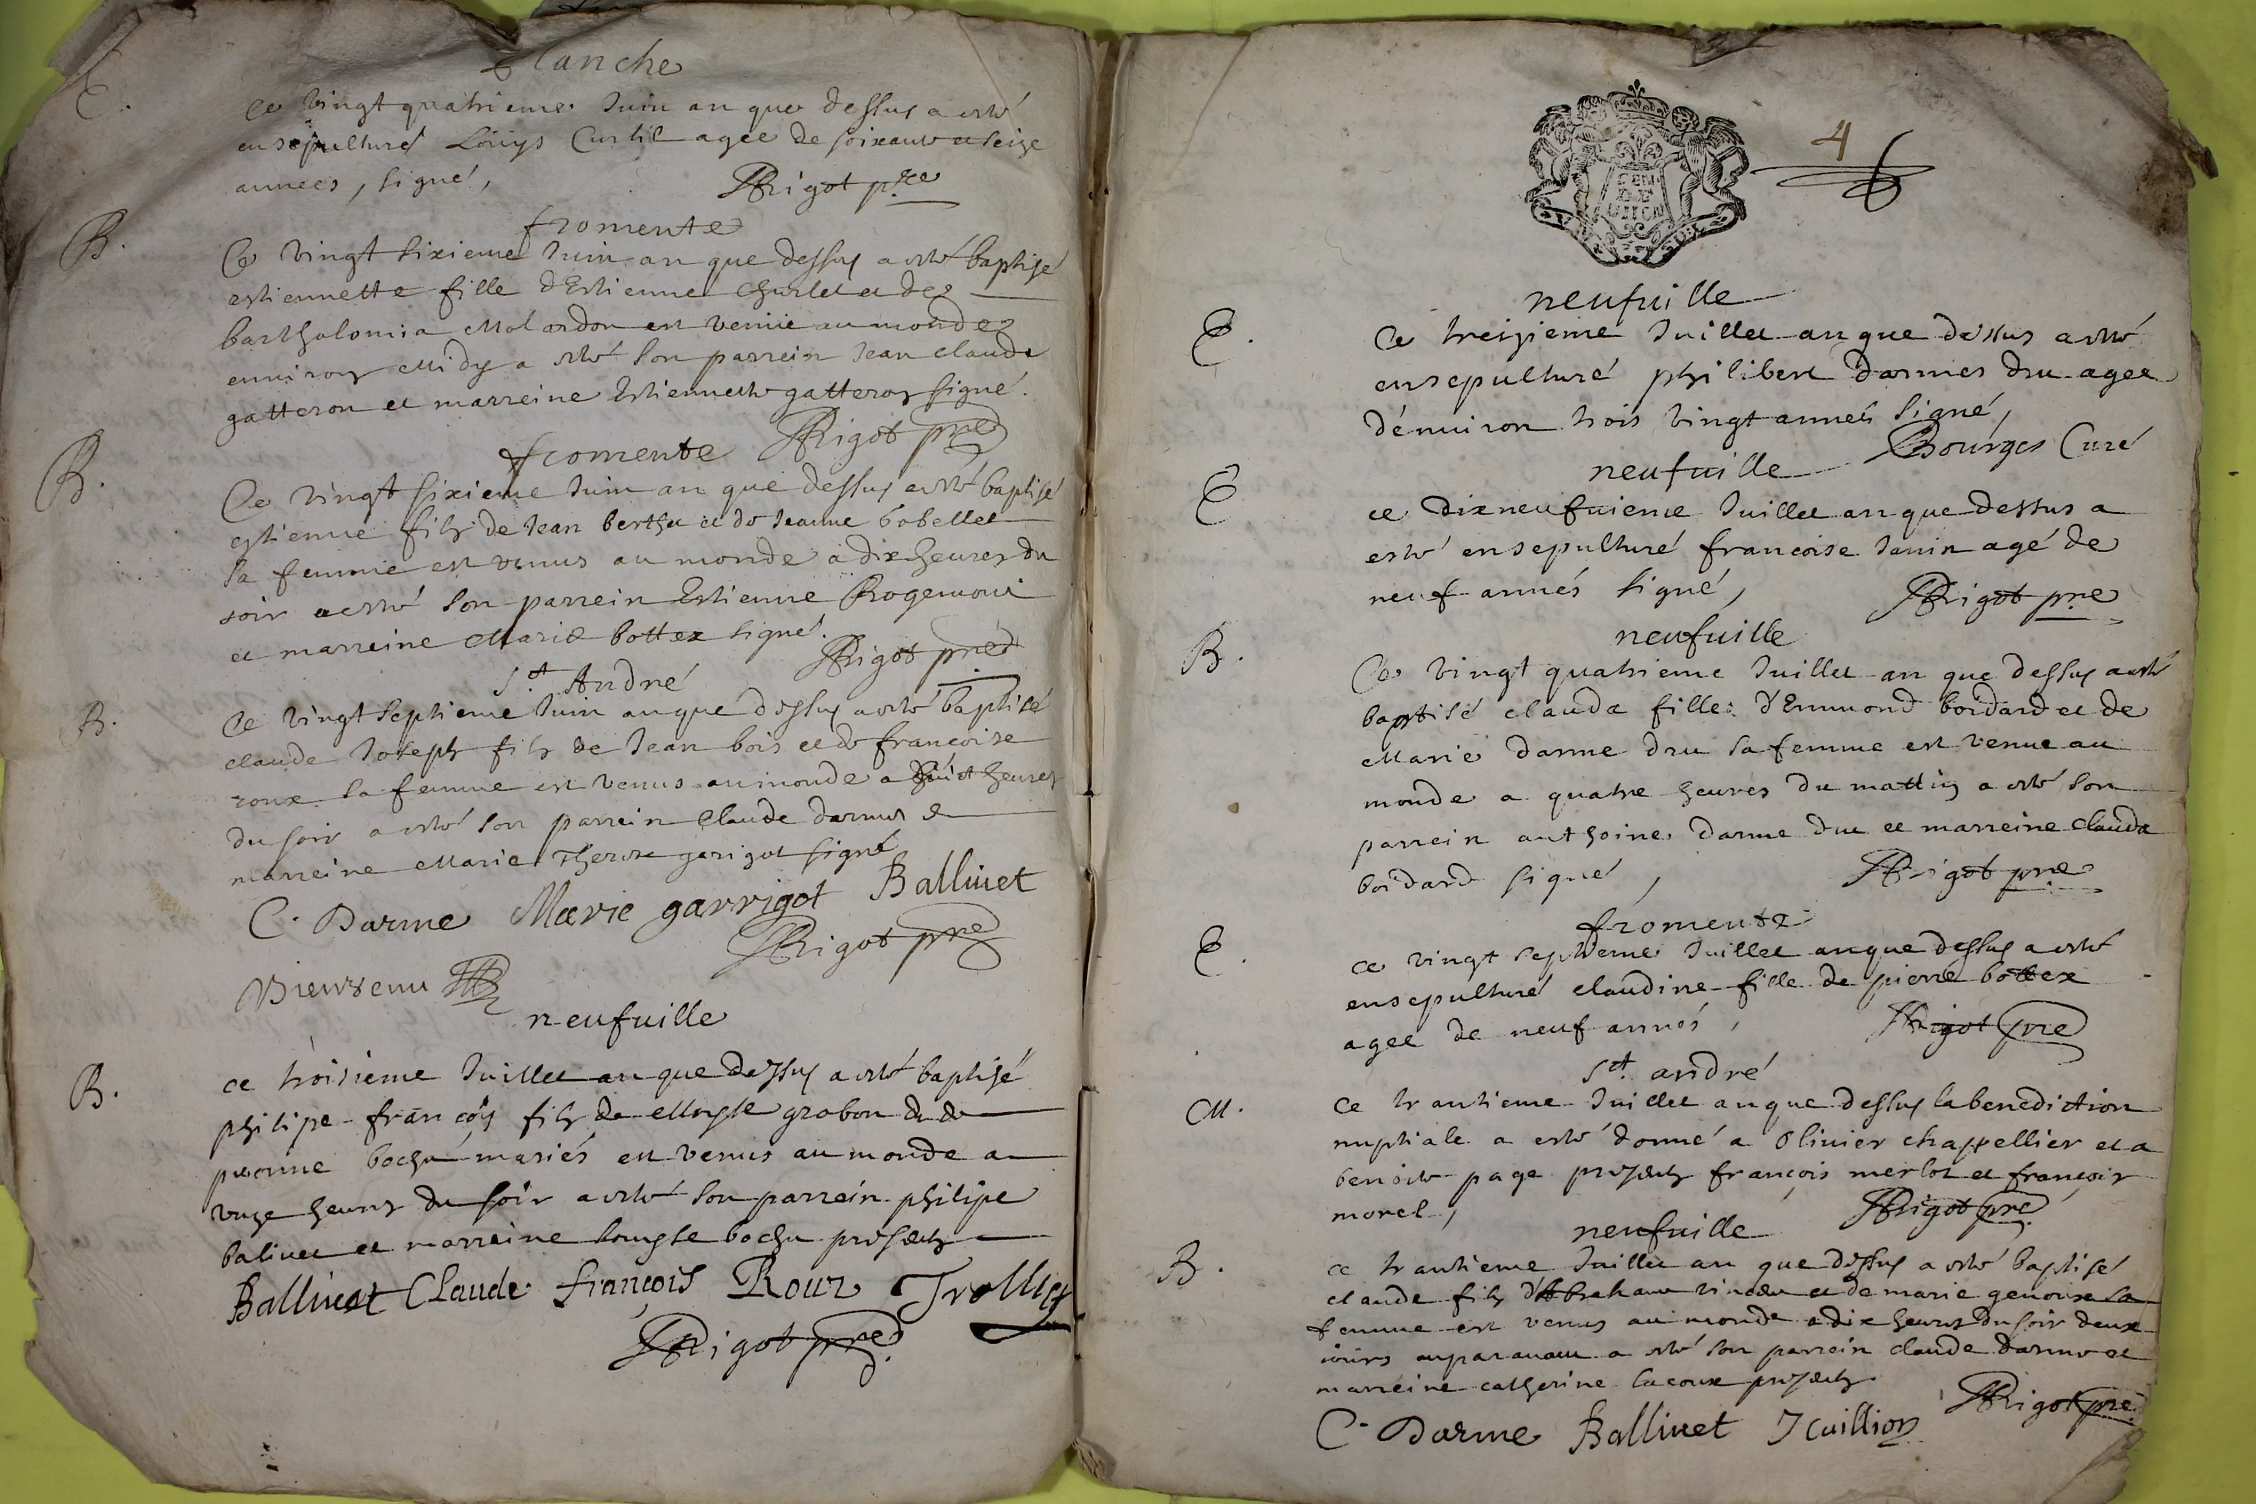 blanche
E.
ce vingt quatrieme Juin an que dessus a esté
ensepulturé Loüys Curtil agee de soixante et seize
annees, signé,
Rigot pre
fromente
B.
Ce vingt sixieme Juin an que dessus a esté baptisé
estiennette fille d'Estienne Churlet et de
barthalomia Molardon est venüe au monde
environ Midy a esté son parrein Jean claude
gatteron et marreine Estiennette gatteron signé.
Rigot pre
fromente
B.
Ce vingt sixieme Juin an que dessus a esté baptisé
estienne fils de Jean berthu et de Jeanne bobellet
sa femme est venus au monde a dix heures du
soir a esté son parrein Estienne Rogemont
et marreine Marie bottex signé.
Rigot pre
St André
B.
Ce vingt septieme Juin an que dessus a esté baptisé
claude Joseph fils de Jean bois et de francoise
roux sa femme est venus au monde a huict heures
du soir a esté son parrein Claude darme et
marreine Marie Therese garigot signé
C. Darme Marie garrigot Ballivet
Rigot pre
Bienvenu
neufuille
B.
ce troisieme Juillet an que dessus a esté baptisé
philipe francoys fils de Moyse grabon et de
pieronne bochu mariés est venus au monde a
unze heures du soir a esté son parrein philipe
balivet et marreine bochu presents
Ballivet Claude françois Rour Trollier
Rigot pre
4
neufuille
E.
Ce treizieme Juillet an que dessus a esté
ensepulturé philibert darmes dru agee
d'environ trois vingt années signé,
Bourges Curé
neufuille
E
ce dixneufuieme Juillet an que dessus a
esté ensepulturé francoise Janin agé de
neuf annés signé,
Rigot pre
neufuille
B.
Ce vingt quatrieme Juillet an que dessus a esté
baptisé clauda fille d'Emmond boidard et de
Marie darme dru sa femme est venue au
monde a quatre heures du mattin a esté son
parrein anthoine darme dru et marreine clauda
boidard signé,
Rigot pre
fromente
E.
ce vingt septieme Juillet an que dessus a esté
ensepulturé claudine fille de pierre bottex
agee de neuf annés,
Rigot pre
St. andré
M.
Ce trantieme Juillet an que dessus la benediction
nuptiale a esté donné a Olivier chappellier et a
benoite page presents françois merlot et françois
morel,
Rigot pre
neufuille
B.
ce trantieme Juillet an que dessus a esté baptisé
claude fils d'Abraham et de marie genoux sa
femme est venus au monde a dix heures du soir deux
iours auparavant a esté son parrein claude darme et
marreine catherine lacoux presents
Rigot pre
C. Darme Ballivet Juillion